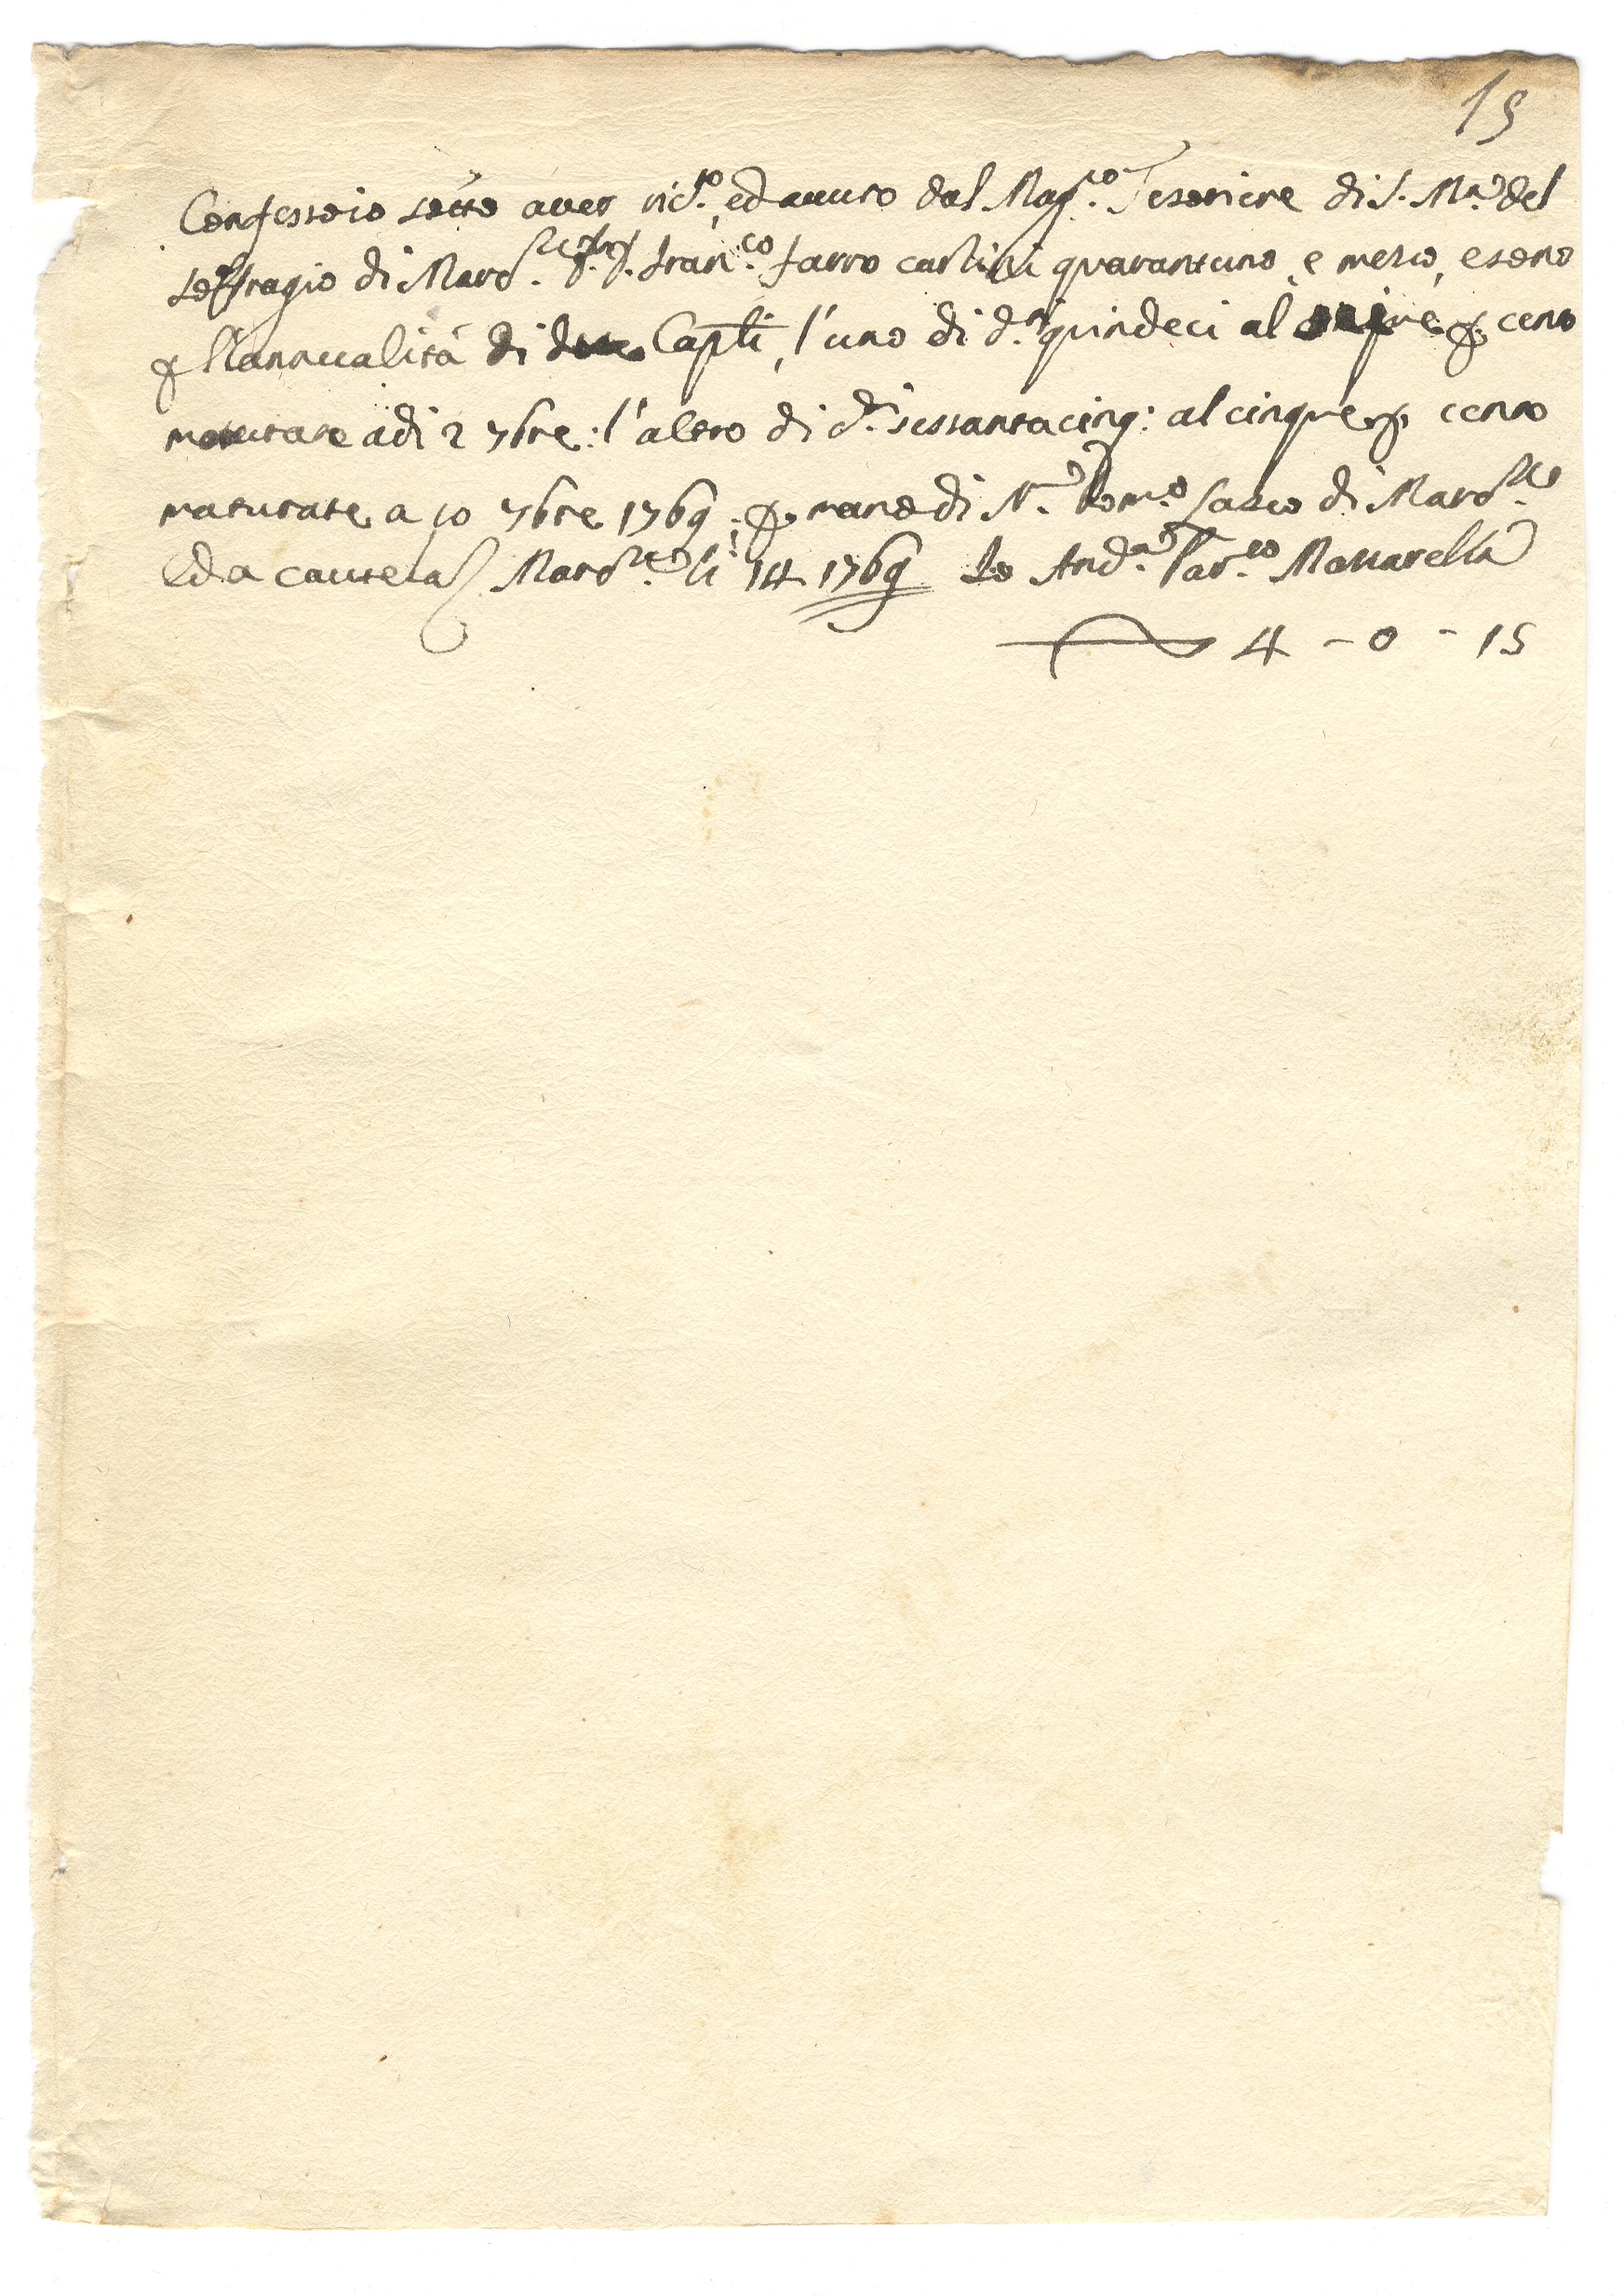 15
Confesso io sotto aver ric.to, ed avuto dal Mag.co Tesoriere di S. M.a del
soffragio di Mard.lle Fran.co farro carlini quarantuno, e mezzo, e sono
p l'annualità di due Cap.li, l'uno di d.ti quindeci al cinque p cento
maturate a di 2 7bre: l'altro di d.ti sessantacinq: al cinque p cento
maturate a 10 7bre 1769. p mano di N.r Dom.o Sasso di Mard.lle
Ed a cautela Mard.lle li 14 1769 Io And.a Par.co Massarella
4 - 0 - 15